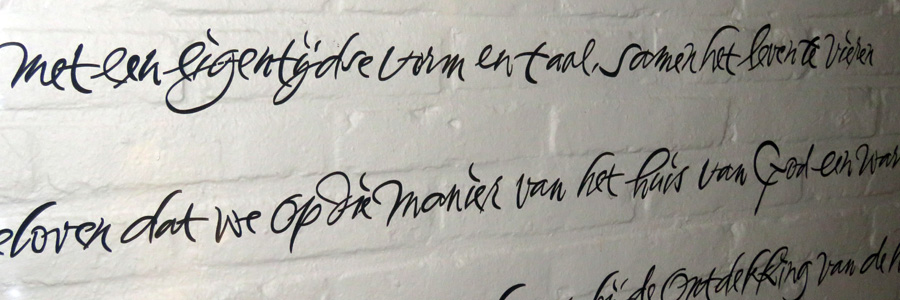 met een eigentijdse vorm en taal, samen het leven te vieren
eloven dat we op die manier van het huis van God een war
bij de Ontdekking van de h